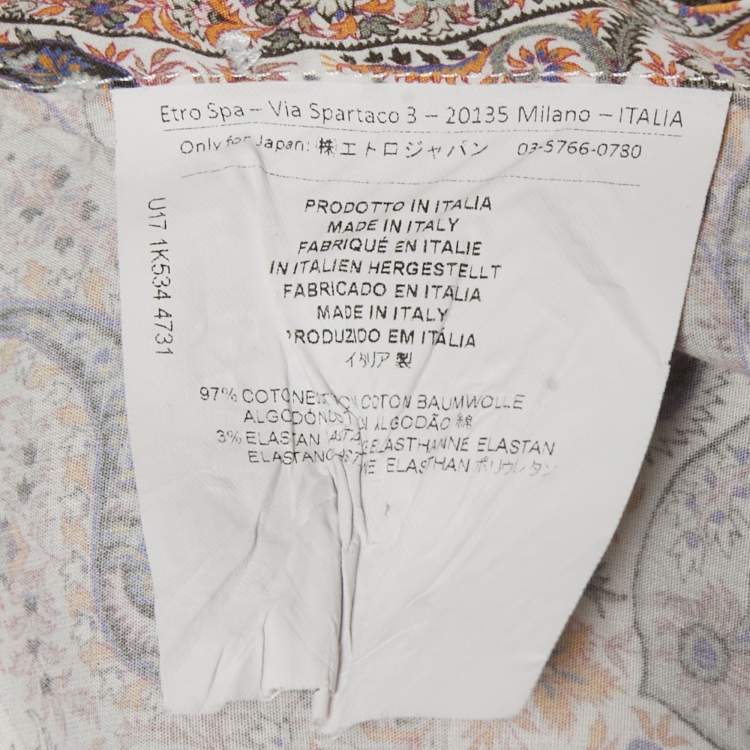 Etro Spa – Via Spartaco 3 – 20135 Milano – ITALIA
Only for Japan: ㈱エトロジャパン 03-5766-0780
U17 1K534 4731
PRODOTTO IN ITALIA
MADE IN ITALY
FABRIQUÉ EN ITALIE
IN ITALIEN HERGESTELLT
FABRICADO EN ITALIA
MADE IN ITALY
PRODUZIDO EM ITÁLIA
イタリア製
97% COTONE COTON BAUMWOLLE
ALGODÓN ALGODÃO 綿
3% ELASTAN ELASTHANNE ELASTAN
ELASTANO ELASTHAN ポリウレタン